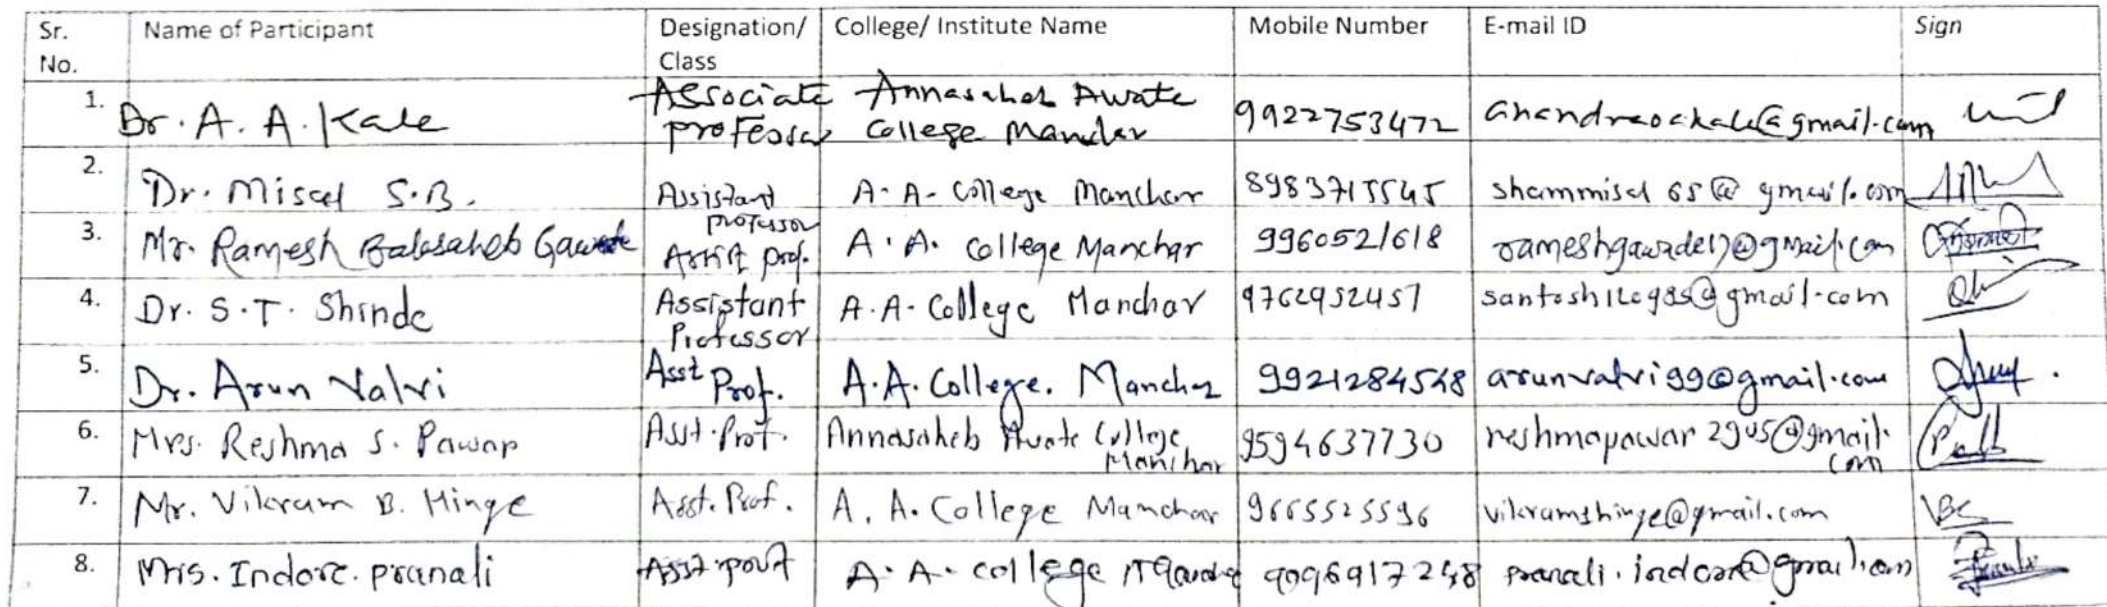 Sr. No. Name of Participant Designation/ Class College/ Institute Name Mobile Number E-mail ID Sign
1. Dr. A. A. Kale Associate professor Annasaheb Awate College Manchar 9922753472 anandraoakale@gmail.com
2. Dr. Misal S.B. Assistant professor A. A. College Manchar 8983715545 shammisal65@gmail.com
3. Mr. Ramesh Babasaheb Gawade Assist prof. A. A. College Manchar 9960521618 rameshgawade17@gmail.com
4. Dr. S.T. Shinde Assistant Professor A.A. College Manchar 9762952457
5. Dr. Arun Valvi Asst Prof. A.A. College. Manchar 9921284548 arunvalvi99@gmail.com
6. Mrs. Reshma S. Pawar Asst. Prof. Annasaheb Awate College Manchar 9594637730 reshmapawar2905@gmail.com
7. Mr. Vikram B. Hinge Asst. Prof. A. A. College Manchar 9665525596 vikramshinge@gmail.com
8. Mrs. Indore. pranali Asst. prof A. A. college Manchar 9096917248 pranali.indore@gmail.com